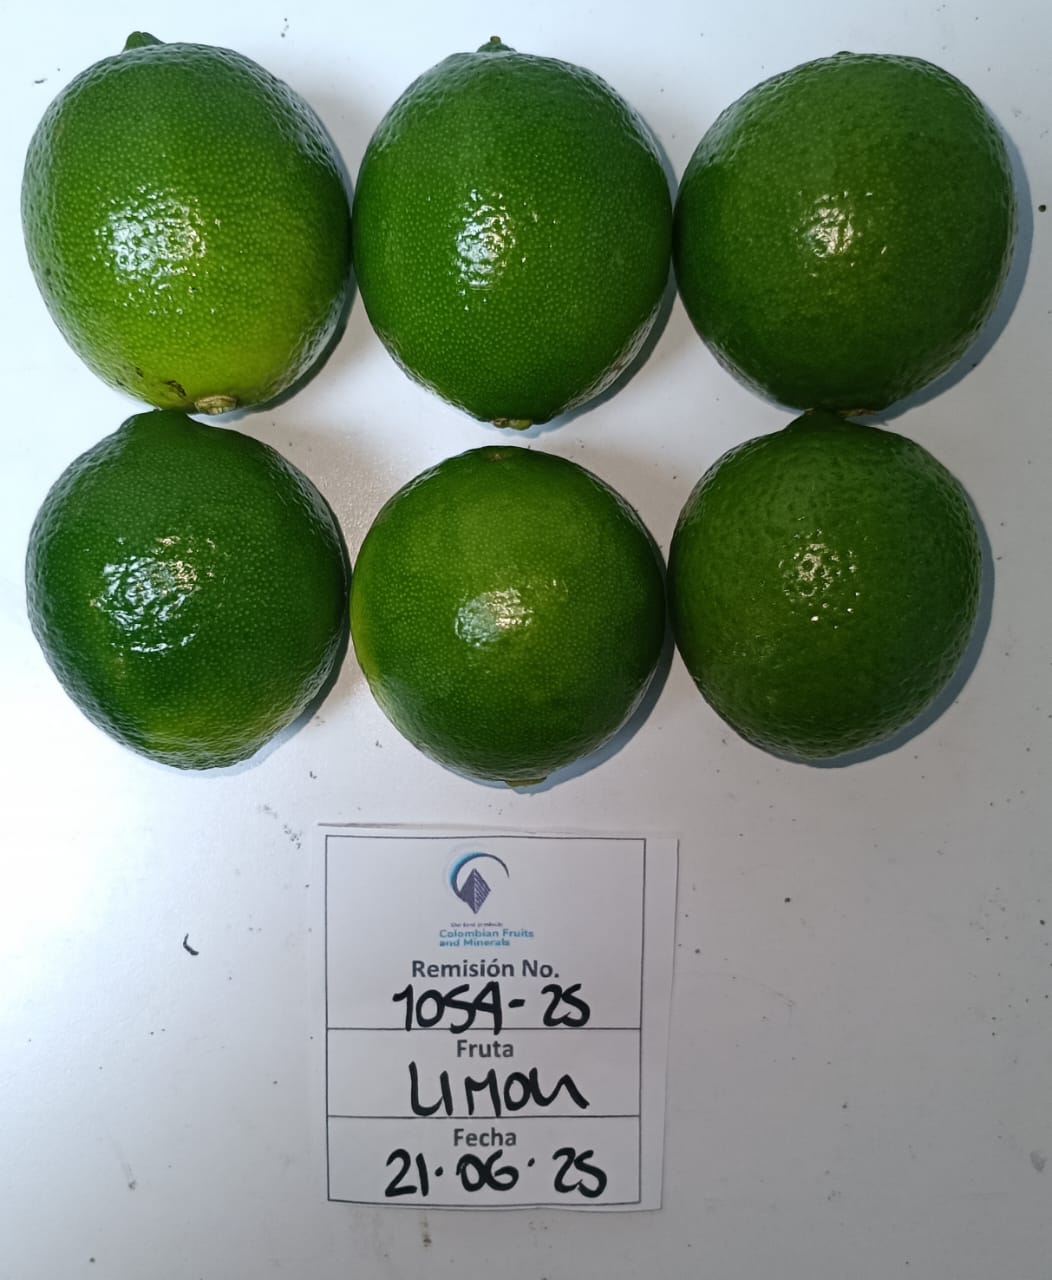 the best products
Colombian Fruits
and Minerals
Remisión No.
1054-25
Fruta
LIMON
Fecha
21.06.25